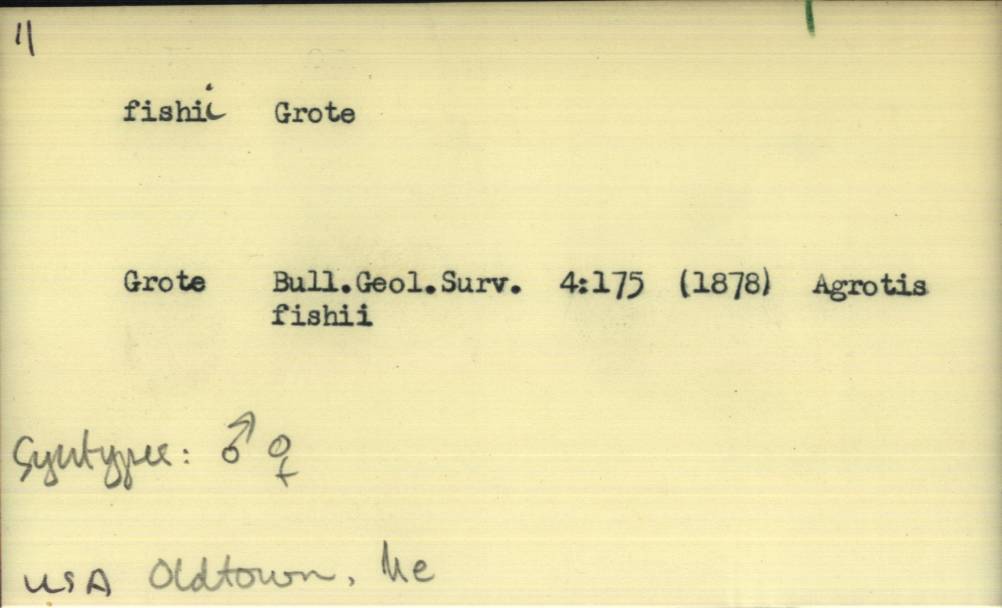 11
fishii Grote
Grote Bull.Geol.Surv. 4:175 (1878) Agrotis
fishii
Syntypes: ♂ ♀
USA Oldtown, Me